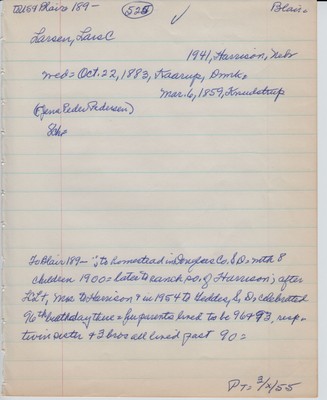 Blair 189- 525 Blair.
Larsen, Lars C
1941, Harrison, Nebr
wed = Oct. 22, 1883, Kaarup, Dmk.
Mar. 6, 1859, Knudstrup
(Jens Peder Pedersen)
To Blair 189- "; to homestead in Douglas Co. S.D. with 8
children 1900 = later to ranch so. of Harrison; after
, Mrs to Harrison & in 1954 to Geddes, S.D., celebrated
96th birthday there = her parents lived to be 96 & 93, resp =
twin sister & 3 bros all lived past 90 =
PT = 3/ /55